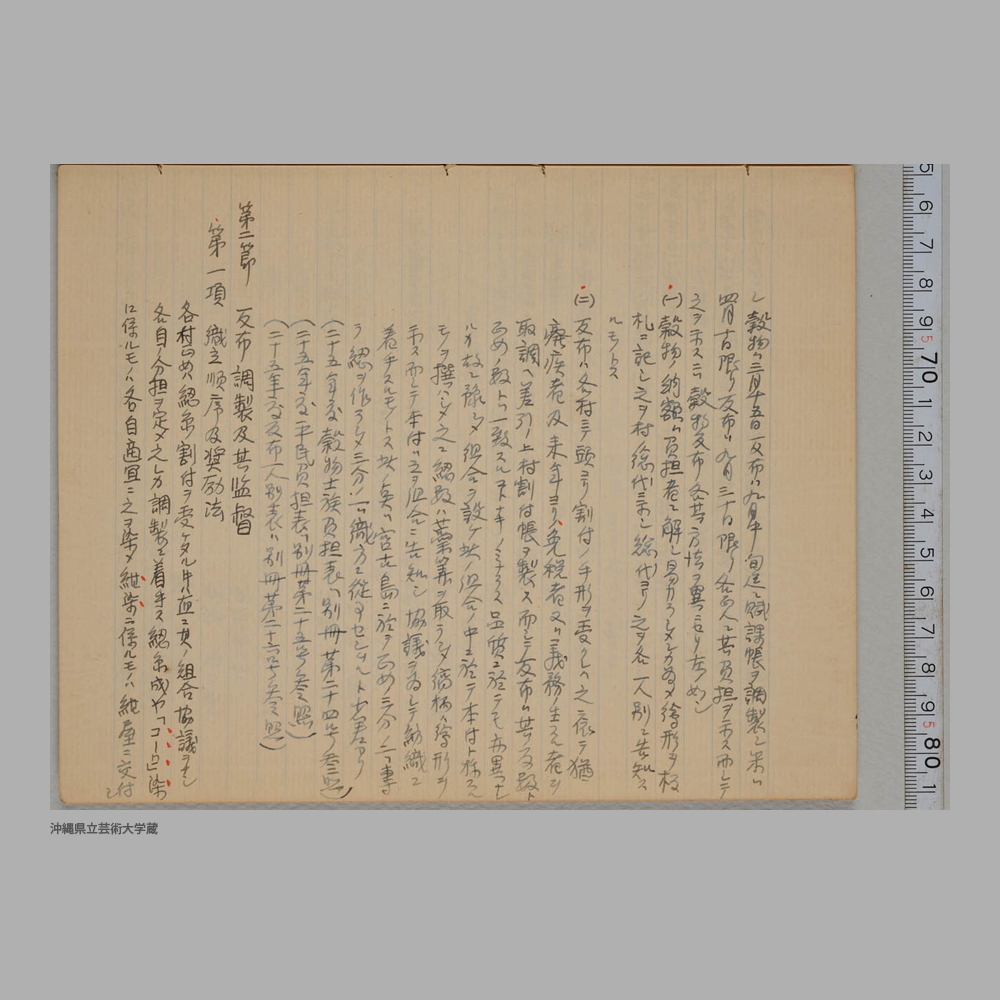 シ穀物ハ三月十五日反布ハ九月中旬迄ニ賦課帳ヲ調製シ米ハ
四月十日限リ反布ハ九月三十日限リ各人ニ其負担ヲ示ス而シテ
之ヲ示スニハ穀物反布各其方法ヲ異ニセリ左ノ如シ
(一) 穀物ノ納額ハ負担者ニ解シ易カラシメンカ為メ絵形ヲ板
札ニ記シ之ヲ村総代ニ示シ総代ヨリ之ヲ各一人別ニ告知ス
ルモノトス
(二) 反布ハ各村ニテ頭ヨリ割付ノ手形ヲ受クル之ニ依テ猶
癈疾者及来年ヨリ免税者又ハ義務ノ生スル者ヲ
取調ヘ差引ノ上村割付帳ヲ製ス而シテ反布ハ其反数ト
ノ数ト一致スル ナキノミナラス品質ニ於テモ亦異ナレ
ハ 組合ヲ設ケ此ノ組合ノ中ニ於テ本付ト称スル
モノヲ撰ハシメ之ニ総数ハ藁算ヲ取ラシメ縞柄ハ絵形ヲ
示ス而シテ本付ハ之ヲ組合ニ告知シ協議ヲ為シテ紡織ニ
着手スルモノトス此ノ 宮古島ニ於テ 三分ノ二ハ専
ラ総ヲ作ラシメ三分ノ一ハ織方ニ従事セシム
(二十五年度穀物士族負担表ハ別冊第二十四号参照)
(二十五年度平民負担表ハ別冊第二十五号参照)
(二十五年度反布一人別表ハ別冊第二十六号参照)
第二節 反布ノ調製及其監督
第一項 織立順序及奨励法
各村 ハ総糸ノ割付ヲ受ケタル片直ニ其ノ組合協議ヲナシ
各自ノ分担ヲ定メ之レカ調製ニ着手ス総糸成ヤ「コーロ」染
ニ係ルモノハ各自適宜ニ之ヲ染メ紺染ニ係ルモノハ紺屋ニ交付シ
沖縄県立芸術大学蔵
5 6 7 8 9 5 70 1 2 3 4 5 6 7 8 9 5 80 1